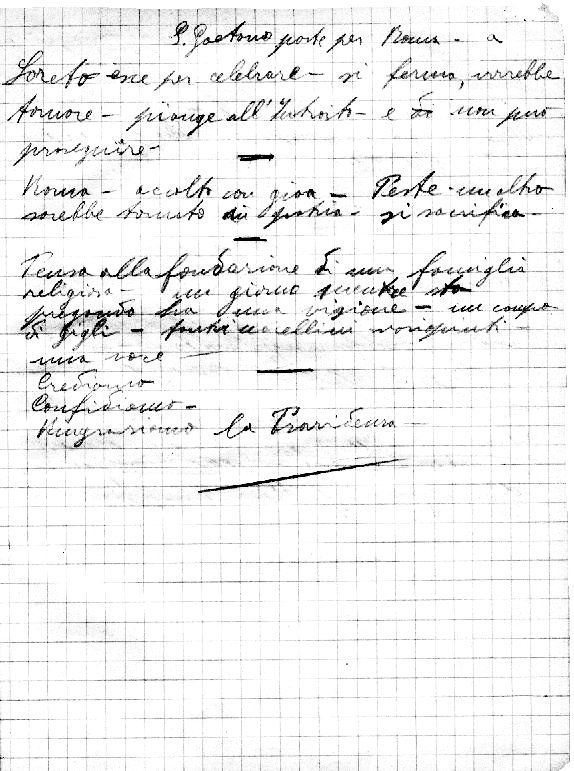 P. Gaetano parte per Roma - a
Loreto esce per celebrare - si ferma, vorrebbe
tornare - piange all'Introito - e non può
proseguire -
Roma - accolto con gioia - Peste - un altro
sarebbe tornato in patria - si sacrifica -
Pensa alla fondazione di una famiglia
religiosa - un giorno mentre sta
pregando ha una visione - un campo
di gigli - tanti uccellini variopinti -
una voce
Crediamo
Confidiamo -
Ringraziamo la Provvidenza -